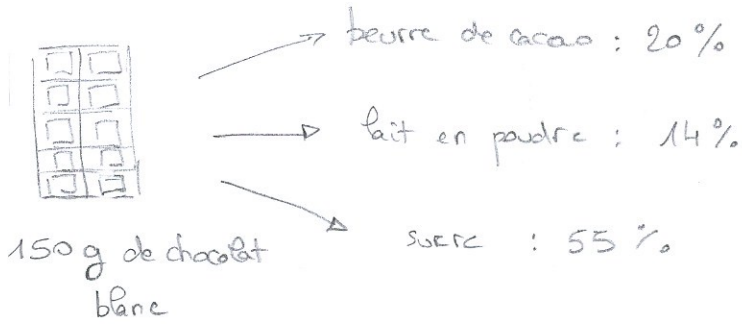 beurre de cacao : 20 %
lait en poudre : 14 %
sucre : 55 %
150 g de chocolat
blanc